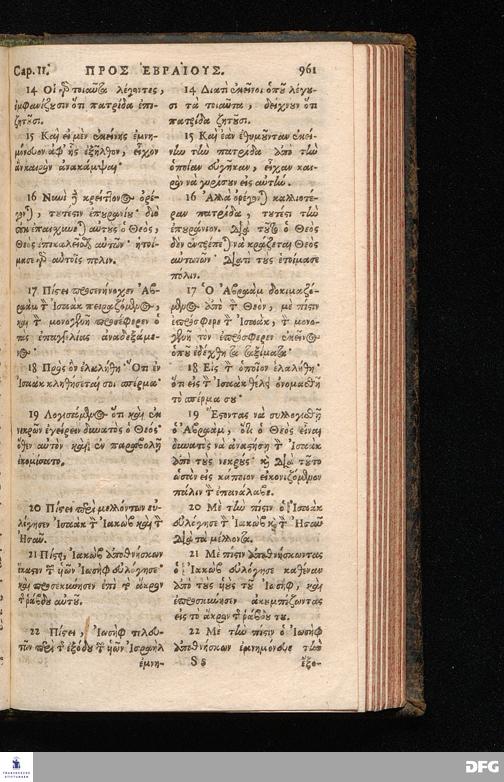 Cap. 11. ΠΡΟΣ ἙΒΡΑΙΟΥΣ. 961
14 Οἱ γὰρ τοιαῦτα λέγοντες,
ἐμφανίζουσιν ὅτι πατρίδα ἐπι-
ζητοῦσι.
15 Καὶ εἰ μὲν ἐκείνης ἐμνη-
μόνευον ἀφ' ἧς ἐξῆλθον, εἶχον
ἂν καιρὸν ἀνακάμψαι·
16 Νυνὶ δὲ κρείττονος ὀρέ-
γονται, τουτέστιν ἐπουρανίου· διὸ
οὐκ ἐπαισχύνεται αὐτοὺς ὁ Θεὸς,
Θεὸς ἐπικαλεῖσθαι αὐτῶν· ἡτοί-
μασε γὰρ αὐτοῖς πόλιν.
17 Πίστει προσενήνοχεν Ἀβ-
ραὰμ τὸν Ἰσαὰκ πειραζόμενος,
καὶ τὸν μονογενῆ προσέφερεν ὁ
τὰς ἐπαγγελίας ἀναδεξάμε-
νος·
18 Πρὸς ὃν ἐλαλήθη· Ὅτι ἐν
Ἰσαὰκ κληθήσεταί σοι σπέρμα·
19 Λογισάμενος ὅτι καὶ ἐκ
νεκρῶν ἐγείρειν δυνατὸς ὁ Θεός·
ὅθεν αὐτὸν καὶ ἐν παραβολῇ
ἐκομίσατο.
20 Πίστει περὶ μελλόντων εὐ-
λόγησεν Ἰσαὰκ τὸν Ἰακὼβ καὶ τὸν
Ἠσαῦ.
21 Πίστει, Ἰακὼβ ἀποθνήσκων
ἕκαστον τῶν υἱῶν Ἰωσὴφ εὐλόγησε·
καὶ προσεκύνησεν ἐπὶ τὸ ἄκρον
τῆς ῥάβδου αὐτοῦ.
22 Πίστει, Ἰωσὴφ τελευ-
τῶν περὶ τῆς ἐξόδου τῶν υἱῶν Ἰσραὴλ
ἐμνη-
14 Διατὶ ἐκεῖνοι ὁποῦ λέγου-
σι τὰ τοιαῦτα, δείχνουν ὅτι
πατρίδα ζητοῦσι.
15 Καὶ ἐὰν ἐθυμοῦνταν ἐκεί-
νην τὴν πατρίδα ἀπὸ τὴν
ὁποίαν εὐγῆκαν, εἶχαν και-
ρὸν νὰ γυρίσουν εἰς αὐτήν.
16 Ἀλλὰ ὀρέγονται καλλιοτέ-
ραν πατρίδα, τουτέστι τὴν
ἐπουράνιον. Διὰ τοῦτο ὁ Θεὸς
δὲν ἐντρέπεται νὰ κράζεται Θεὸς
αὐτωνῶν· Διατὶ τοὺς ἑτοίμασε
πόλιν.
17 Ὁ Ἀβραὰμ δοκιμαζό-
μενος ἀπὸ τὸν Θεὸν, μὲ πίστιν
ἐπρόσφερε τὸν Ἰσαὰκ, τὸν μονο-
γενῆ τον ἐπρόσφερεν ἐκεῖνος
ὁποῦ ἐδέχθη τὰ ταξίματα·
18 Εἰς τὸν ὁποῖον ἐλαλήθη·
ὅτι εἰς τὸν Ἰσαὰκ θέλει ὀνομασθῆ
τὸ σπέρμα σου·
19 Ἔστοντας νὰ συλλογισθῆ
ὁ Ἀβραὰμ, ὅτι ὁ Θεὸς εἶναι
δυνατὸς νὰ ἀναστήσῃ τὸν Ἰσαὰκ
ἀπὸ τοὺς νεκρούς· καὶ Διὰ τοῦτο
ὡσὰν εἰς κάποιον εἰκονιζόμενον
πάλιν τὸν ἐπανάλαβε.
20 Μὲ τὴν πίστιν ὁ Ἰσαὰκ
εὐλόγησε τὸν Ἰακὼβ καὶ τὸν Ἠσαῦ
Διὰ τὰ μέλλοντα.
21 Μὲ πίστιν ἀποθνήσκοντας
ὁ Ἰακὼβ εὐλόγησε καθέναν
ἀπὸ τοὺς υἱοὺς τοῦ Ἰωσὴφ, καὶ
ἐπροσκύνησεν ἀκουμπίζοντας
εἰς τὸ ἄκρον τῆς ῥάβδου του.
22 Μὲ τὴν πίστιν ὁ Ἰωσὴφ
ἀποθνήσκων ἐμνημόνευε τὴν
Ss ἔξο-
FRANCKESCHE
STIFTUNGEN
DFG